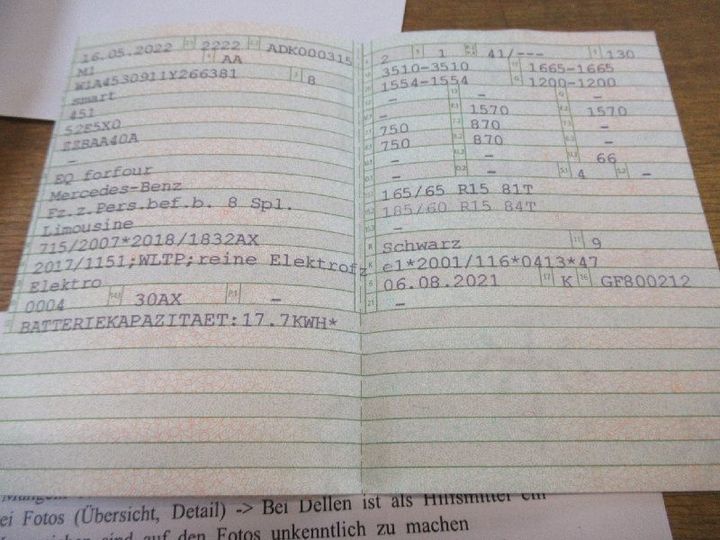 16.05.2022 2222 ADK000315
M1 AA
W1A4530911Y266381 8
smart
451
52E5X0
ZZBAA40A
–
EQ forfour
Mercedes-Benz
Fz.z.Pers.bef.b. 8 Spl.
Limousine
715/2007*2018/1832AX
2017/1151;WLTP;reine Elektrofz
Elektro
0004 30AX –
BATTERIEKAPAZITAET:17.7KWH*
2 1 41/--- 130
3510-3510 1665-1665
1554-1554 1200-1200
– – –
– 1570 1570
750 870 –
750 870 –
– – 66
– – 4 –
165/65 R15 81T
185/60 R15 84T
–
Schwarz 9
e1*2001/116*0413*47
06.08.2021 K GF800212
–
ei Fotos (Übersicht, Detail) -> Bei Dellen ist als Hilfsmittel ein
sind auf den Fotos unkenntlich zu machen